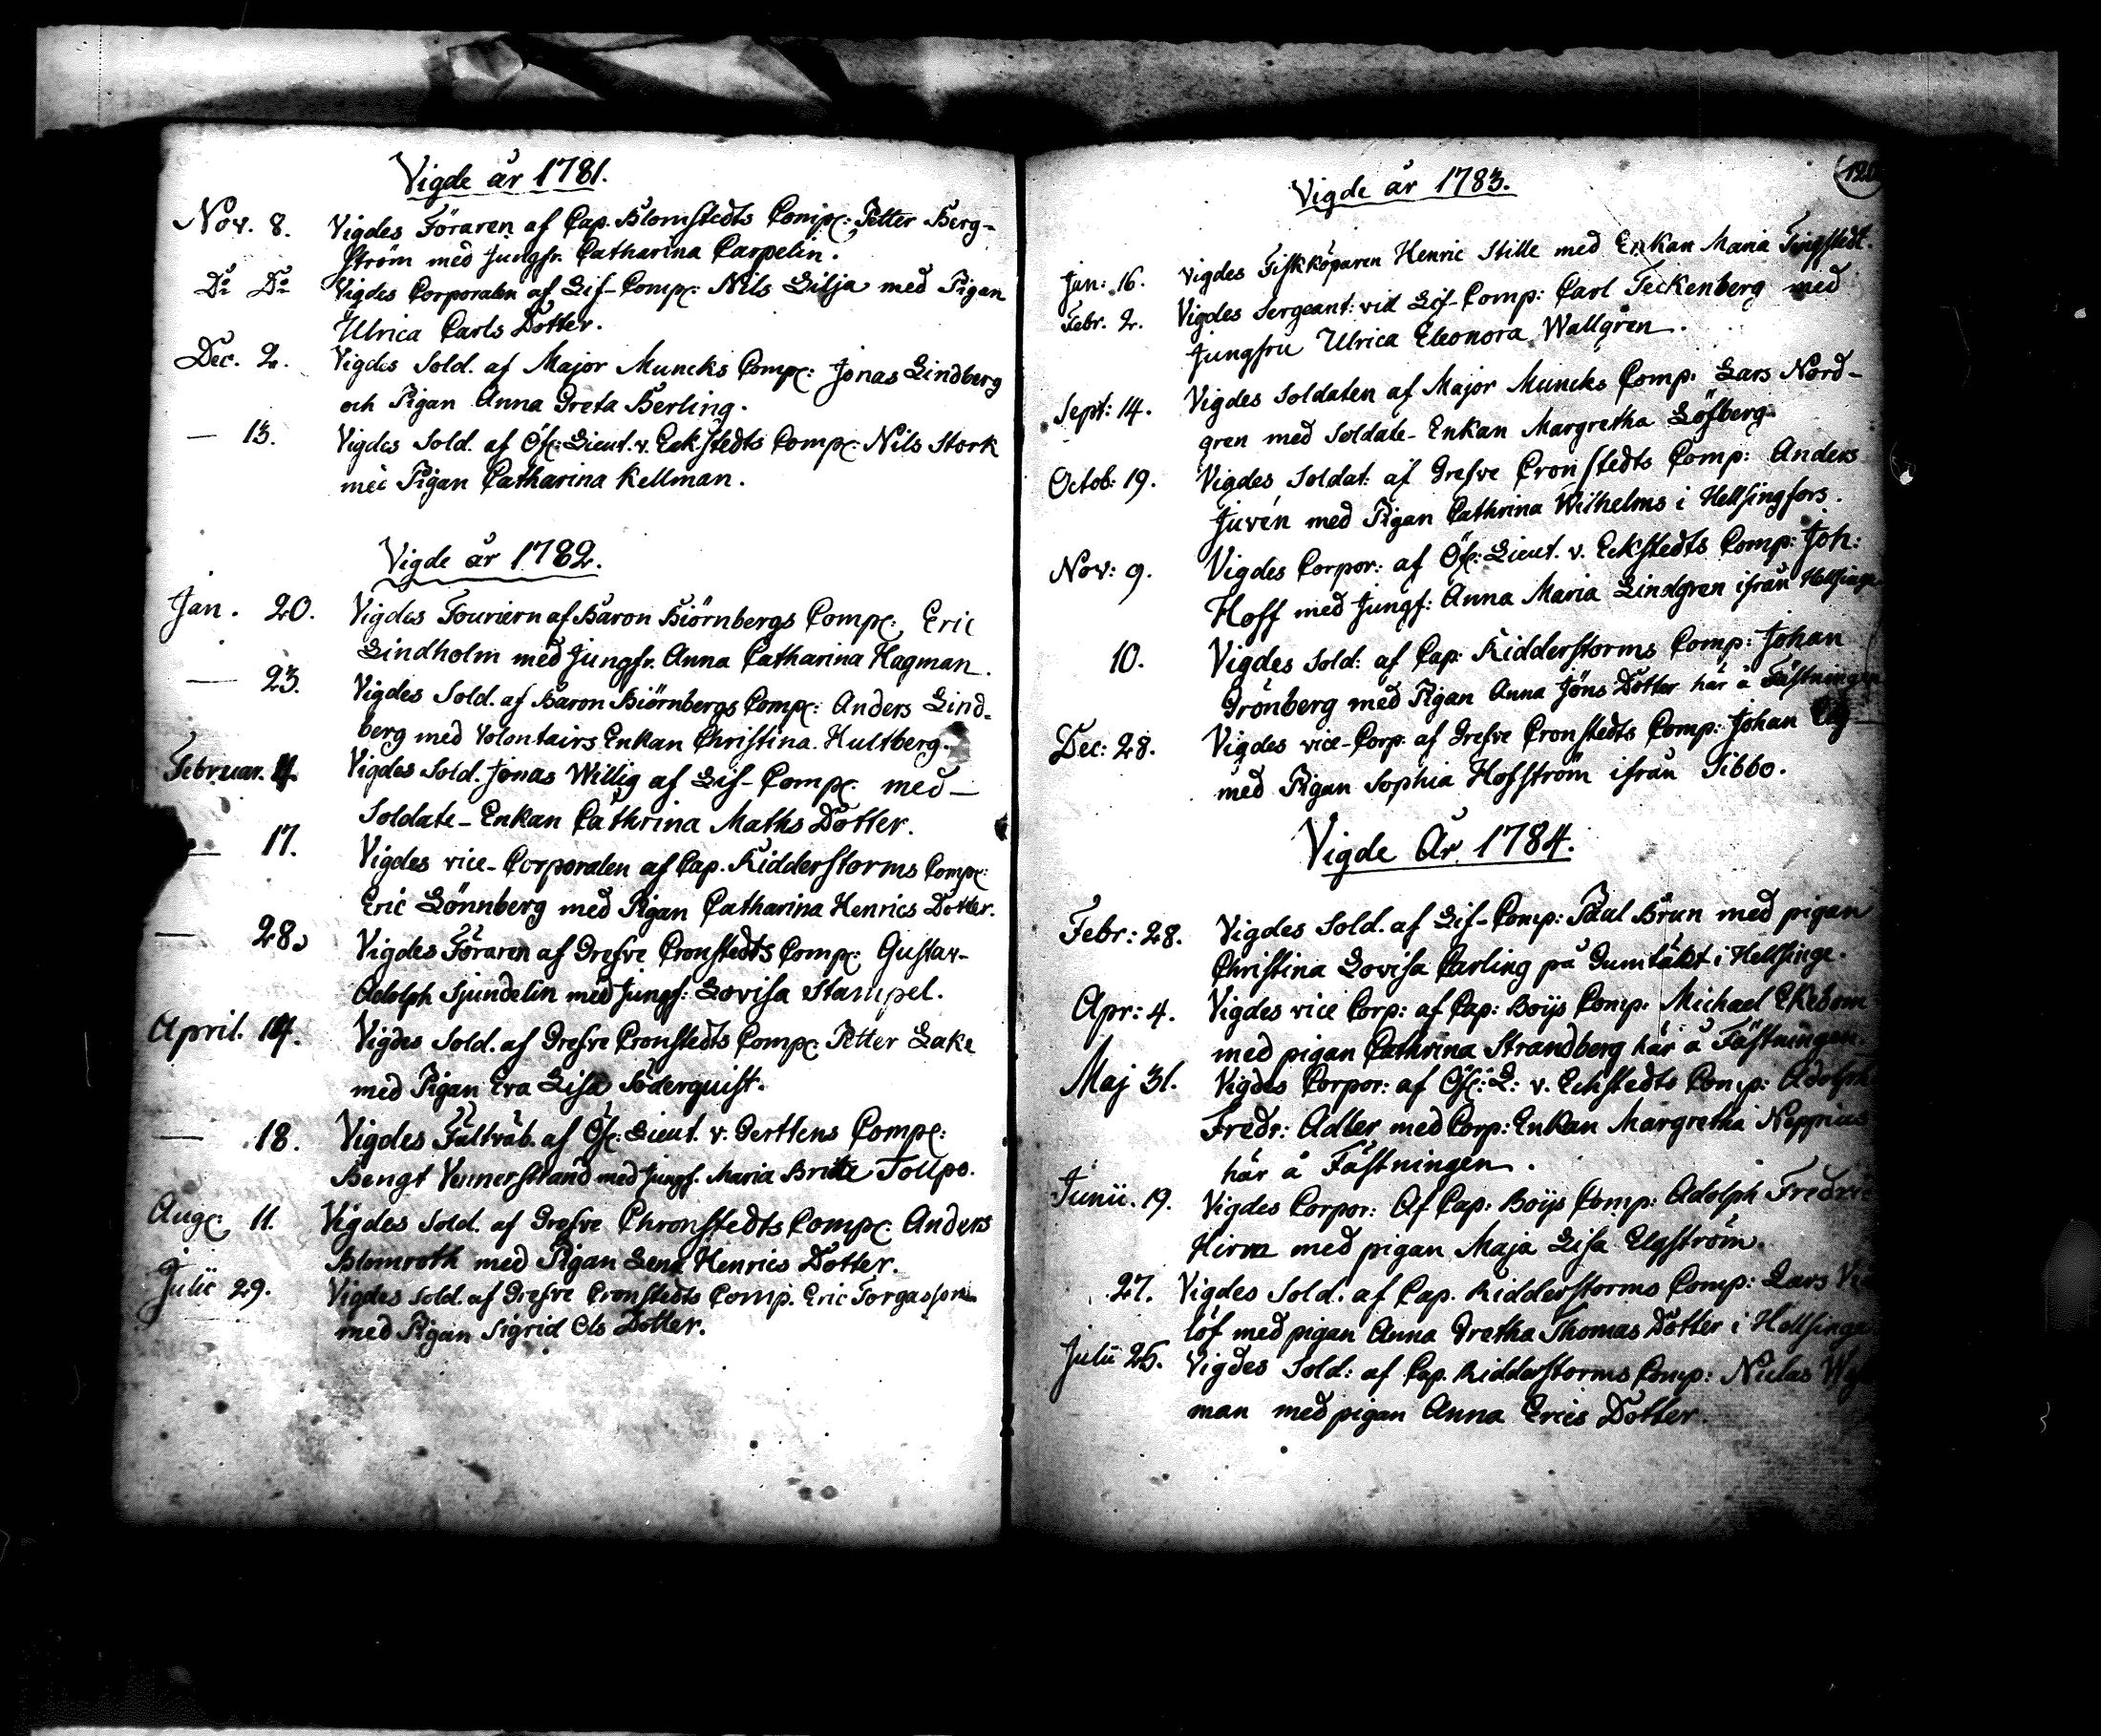 Vigde år 1781.
Nov. 8. Vigdes Föraren af Cap. Blomstedts Comp: Petter Berg-
ström med Jungfr. Catharina Carpelin.
Do Do Vigdes Corporalen af Lif-Comp: Nils Lilja med Pigan
Ulrica Carls Dotter.
Dec. 2. Vigdes Sold. af Major Muncks Comp: Jonas Lindberg
och Pigan Anna Greta Berling.
— 13. Vigdes Sold. af Öf: Lieut. v. Eckstedts Comp: Nils Stork
med Pigan Catharina Kellman.
Vigde år 1782.
Jan. 20. Vigdes Fouriern af Baron Biörnbergs Comp: Eric
Lindholm med Jungfr. Anna Catharina Hagman.
— 23. Vigdes Sold. af Baron Biörnbergs Comp: Anders Lind-
berg med Volontairs Enkan Christina Hultberg.
Februar. Vigdes Sold. Jonas Willig af Lif-Comp: med —
Soldate-Enkan Cathrina Maths Dotter.
— 17. Vigdes vice-Corporalen af Cap. Ridderstorms Comp:
Eric Lönnberg med Pigan Catharina Henrics Dotter.
— 28. Vigdes Föraren af Grefve Cronstedts Comp: Gustav-
Adolph Sjundelin med Jungf: Lovisa Stampel.
April. 14. Vigdes Sold. af Grefve Cronstedts Comp: Petter Lake
med Pigan Eva Lisa Söderquist.
— 18. Vigdes Fältväb. af Öf: Lieut. v. Gerttens Comp:
Bengt Vennerstrand med Jungf. Maria Britte Tollpo.
Aug: 11. Vigdes Sold. af Grefve Chronstedts Comp: Anders
Blomroth med Pigan Lena Henrics Dotter.
Julii 29. Vigdes Sold. af Grefve Cronstedts Comp. Eric Torgasson
med Pigan Sigrid Ols Dotter.
120
Vigde år 1783.
Jan: 16. Vigdes Fiskköparen Henric Stille med Enkan Maria Tingstedt.
Febr. 2. Vigdes Sergeant: vid Lif-Comp: Carl Teckenberg med
Jungfru Ulrica Eleonora Wallgren.
Sept: 14. Vigdes Soldaten af Major Muncks Comp: Lars Nord-
gren med Soldate-Enkan Margretha Löfberg.
Octob: 19. Vigdes Soldat: af Grefve Cronstedts Comp: Anders
Juvén med Pigan Cathrina Wilhelms i Hellsingfors.
Nov: 9. Vigdes Corpor: af Öf: Lieut. v. Eckstedts Comp: Joh:
Hoff med Jungf: Anna Maria Lindgren ifrån Hellsinge
10. Vigdes Sold: af Cap: Ridderstorms Comp: Johan
Grönberg med Pigan Anna Jöns Dotter här å Fästningen
Dec: 28. Vigdes vice-Corp. af Grefve Cronstedts Comp: Johan
med Pigan Sophia Hofström ifrån Sibbo.
Vigde År 1784.
Febr: 28. Vigdes Sold. af Lif-Comp: Paul Brun med pigan
Christina Lovisa Carling på Gumtäkt i Hellsinge.
Apr: 4. Vigdes vice Corp: af Cap: Boijs Comp: Michael Ekebom
med pigan Cathrina Strandberg här å Fästningen.
Maj 31. Vigdes Corpor: af Öf: L: v. Eckstedts Comp: Adolph
Fredr: Adler med Corp: Enkan Margretha Neppius
här å Fästningen.
Junii. 19. Vigdes Corpor: Af Cap: Boijs Comp: Adolph Fredric
Hirm med pigan Maja Lisa Elgström.
27. Vigdes Sold: af Cap. Ridderstorms Comp: Lars
löf med pigan Anna Gretha Thomas Dotter i Hellsinge
Julii 25. Vigdes Sold: af Cap. Ridderstorms Comp: Niclas
man med pigan Anna Erics Dotter.